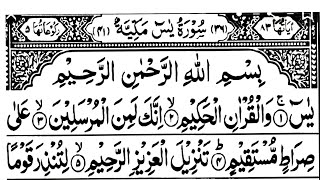 اٰيَاتُهَا ٨٣ (٣٦) سُوْرَةُ يٰسٓ مَكِّيَّةٌ (٤١) رُكُوْعَاتُهَا ٥
بِسْمِ اللّٰهِ الرَّحْمٰنِ الرَّحِيْمِ
يٰسٓ ﴿١﴾ وَالْقُرْاٰنِ الْحَكِيْمِ ﴿٢﴾ اِنَّكَ لَمِنَ الْمُرْسَلِيْنَ ﴿٣﴾ عَلٰى
صِرَاطٍ مُّسْتَقِيْمٍ ﴿٤﴾ تَنْزِيْلَ الْعَزِيْزِ الرَّحِيْمِ ﴿٥﴾ لِتُنْذِرَ قَوْمًا